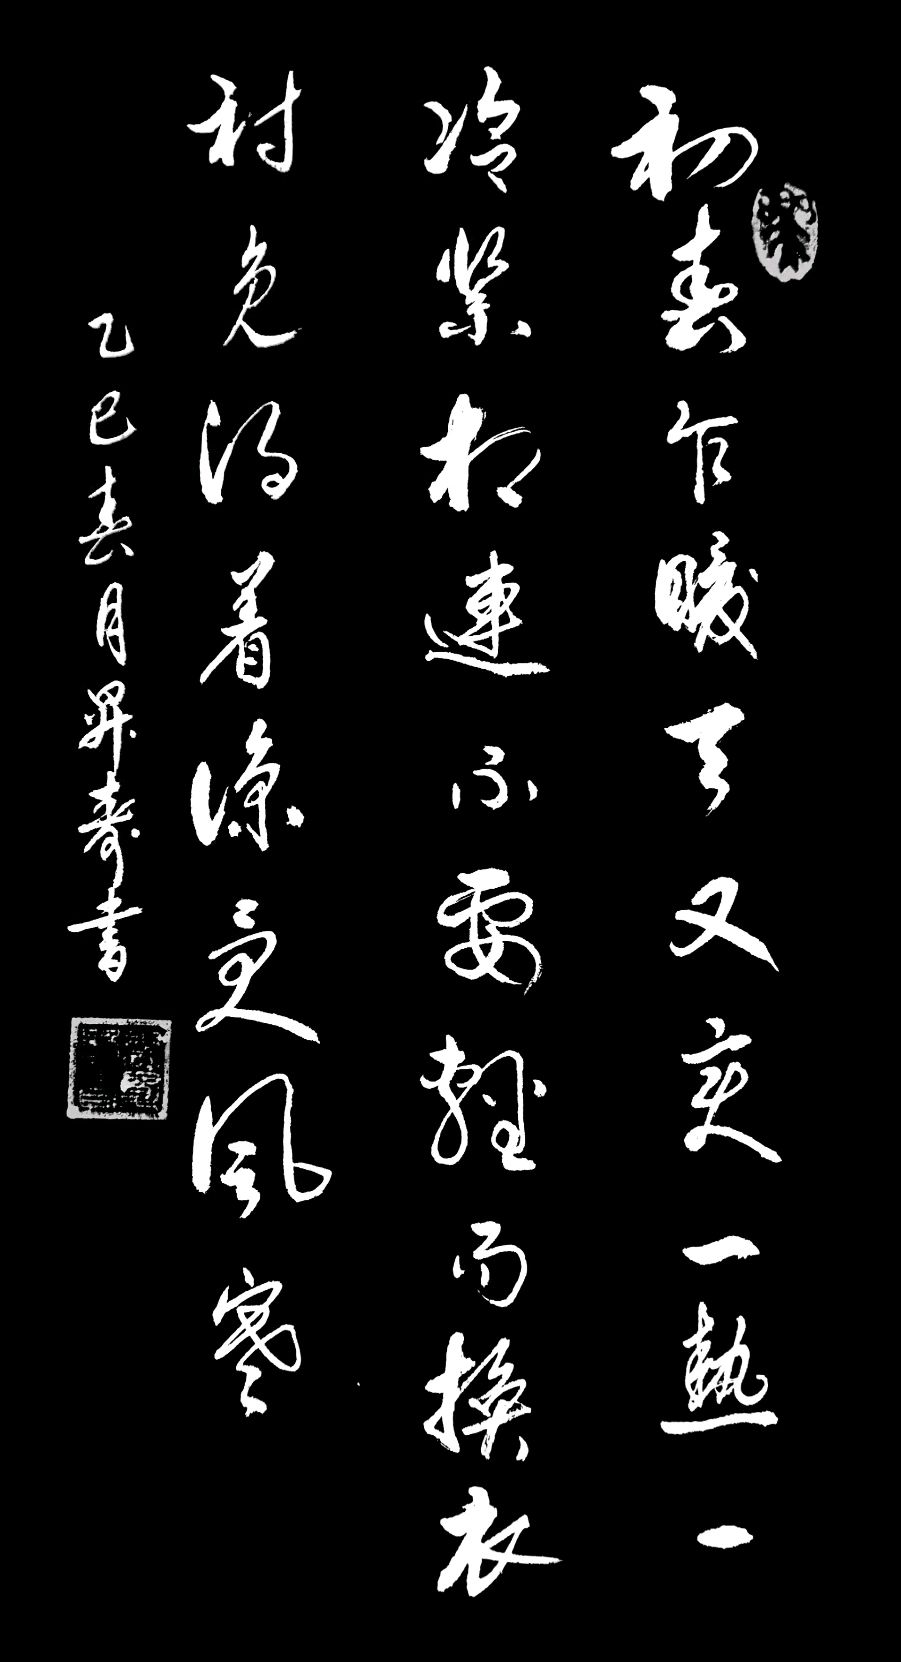 初春乍暖天又变一熱一
冷紧相連不要輕而换衣
衬免得着凉受风寒
乙巳春月昇寿书